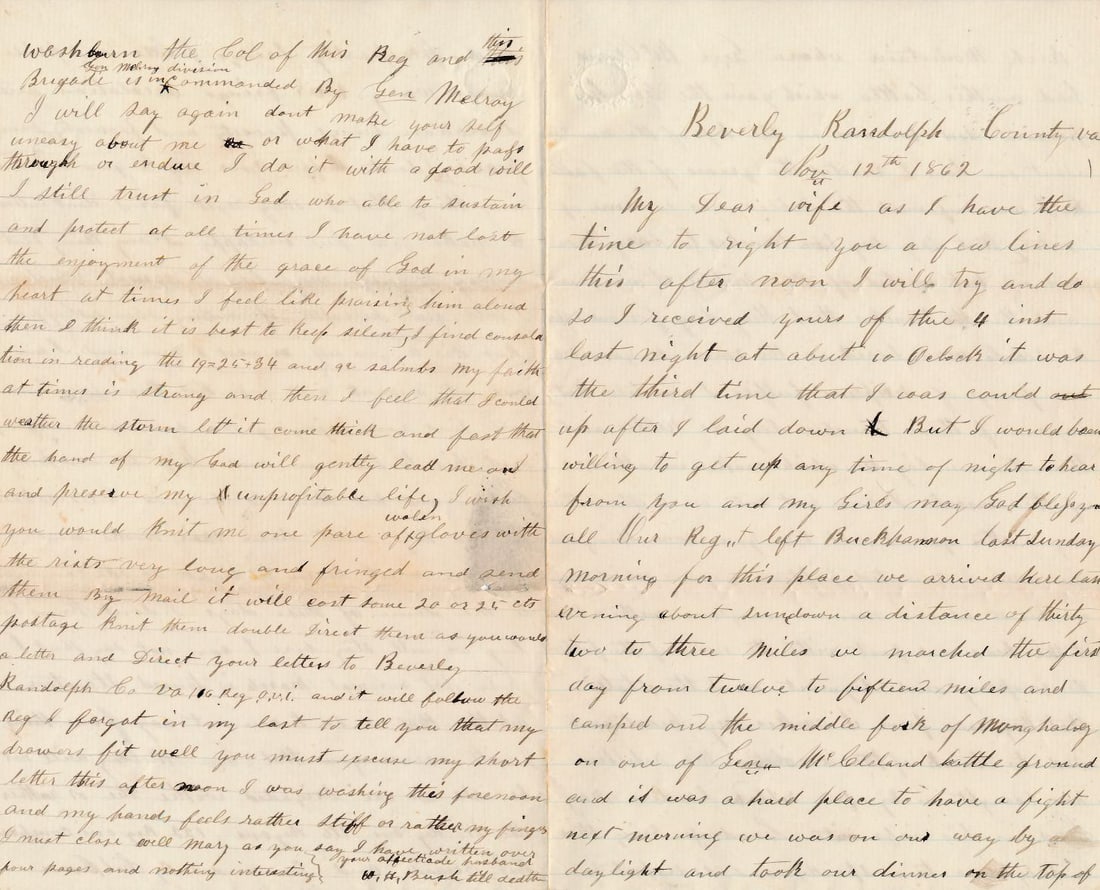 washburn the Col of this Reg and this
Gen Melroy division
Brigade is in commanded By Gen Melroy
I will say again dont make your self
uneasy about me or what I have to pass
through or endure I do it with a good will
I still trust in God who able to sustain
and protect at all times I have not lost
the enjoyment of the grace of God in my
heart at times I feel like praising him aloud
then I think it is best to keep silent, I find consola
tion in reading the 19=25+34 and 91 salmbs my faith
at times is strong and then I feel that I could
weather the storm let it come thick and fast that
the hand of my God will gently lead me on
and preserve my unprofitable life, I wish
you would knit me one pare of wolen gloves with
the rists very long and fringed and send
them By Mail it will cost some 20 or 25 cts
postage Knit them double Direct them as you would
a letter and Direct your letters to Beverly
Randolph Co va 116 Reg O.V.I. and it will follow the
Reg I forgot in my last to tell you that my
drawers fit well you must excuse my short
letter this after noon I was washing this forenoon
and my hands feels rather stiff or rather my fingers
I must close well Mary as you say I have written over
four pages and nothing interesting your affectiade husband
W, H, Bush till death
Beverly Randolph County va
Nov 12th 1862
My Dear wife as I have the
time to right you a few lines
this after noon I will try and do
so I received yours of the 4 inst
last night at about 10 Oclock it was
the third time that I was could out
up after I laid down But I would been
willing to get up any time of night to hear
from you and my Girls may God bless you
all Our Regt left Buckhannon last Sunday
morning for this place we arrived here last
evening about sundown a distance of thirty
two to three miles we marched the first
day from twelve to fifteen miles and
camped on the middle fork of Monghaley
on one of Gen Mc Cleland battle ground
and it was a hard place to have a fight
next morning we was on our way by
daylight and took our dinner on the top of